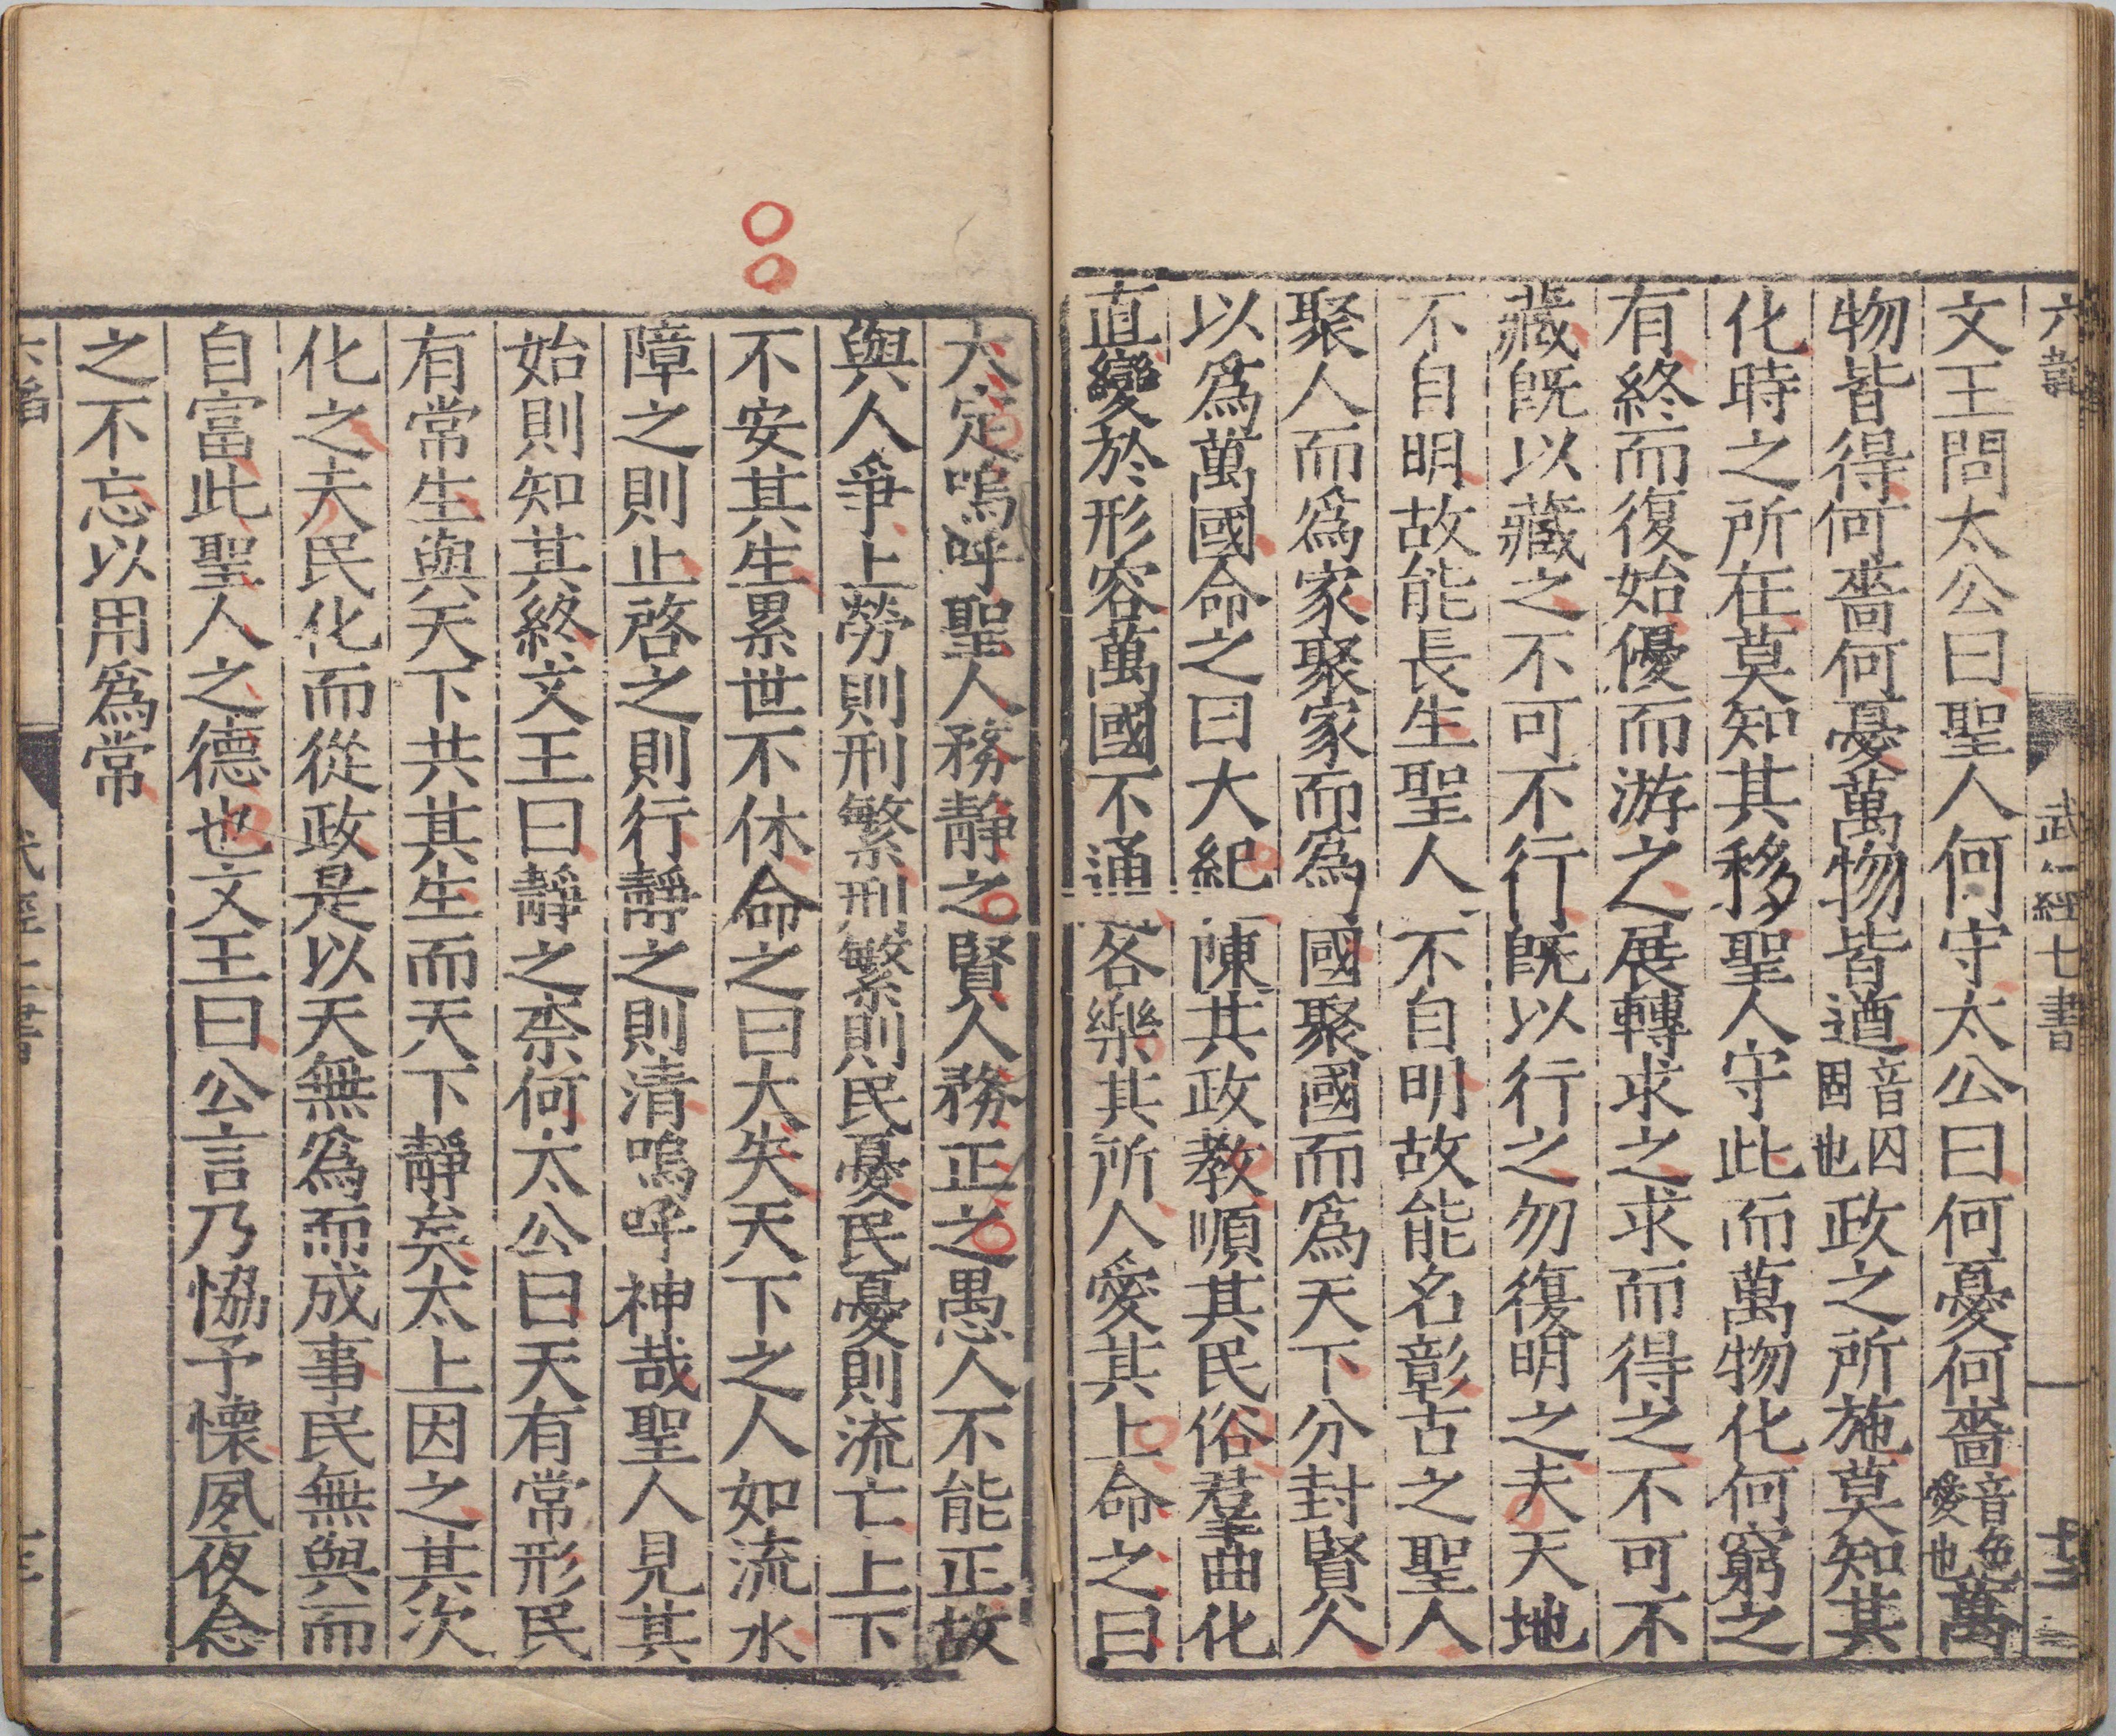 六韜 武經七書 十三
文王問太公曰聖人何守太公曰何憂何嗇音色愛也萬
物皆得何嗇何憂萬物皆遒音囚固也政之所施莫知其
化時之所在莫知其移聖人守此而萬物化何窮之
有終而復始優而游之展轉求之求而得之不可不
藏既以藏之不可不行既以行之勿復明之夫天地
不自明故能長生聖人不自明故能名彰古之聖人
聚人而爲家聚家而爲國聚國而爲天下分封賢人
以爲萬國命之曰大紀陳其政教順其民俗羣曲化
直變於形容萬國不通各樂其所人愛其上命之曰
大定嗚呼聖人務靜之賢人務正之愚人不能正故
與人爭上勞則刑繁刑繁則民憂民憂則流亡上下
不安其生累世不休命之曰大失天下之人如流水
障之則止啓之則行靜之則清嗚呼神哉聖人見其
始則知其終文王曰靜之柰何太公曰天有常形民
有常生與天下共其生而天下靜矣太上因之其次
化之夫民化而從政是以天無爲而成事民無與而
自富此聖人之德也文王曰公言乃恊予懷夙夜念
之不忘以用爲常